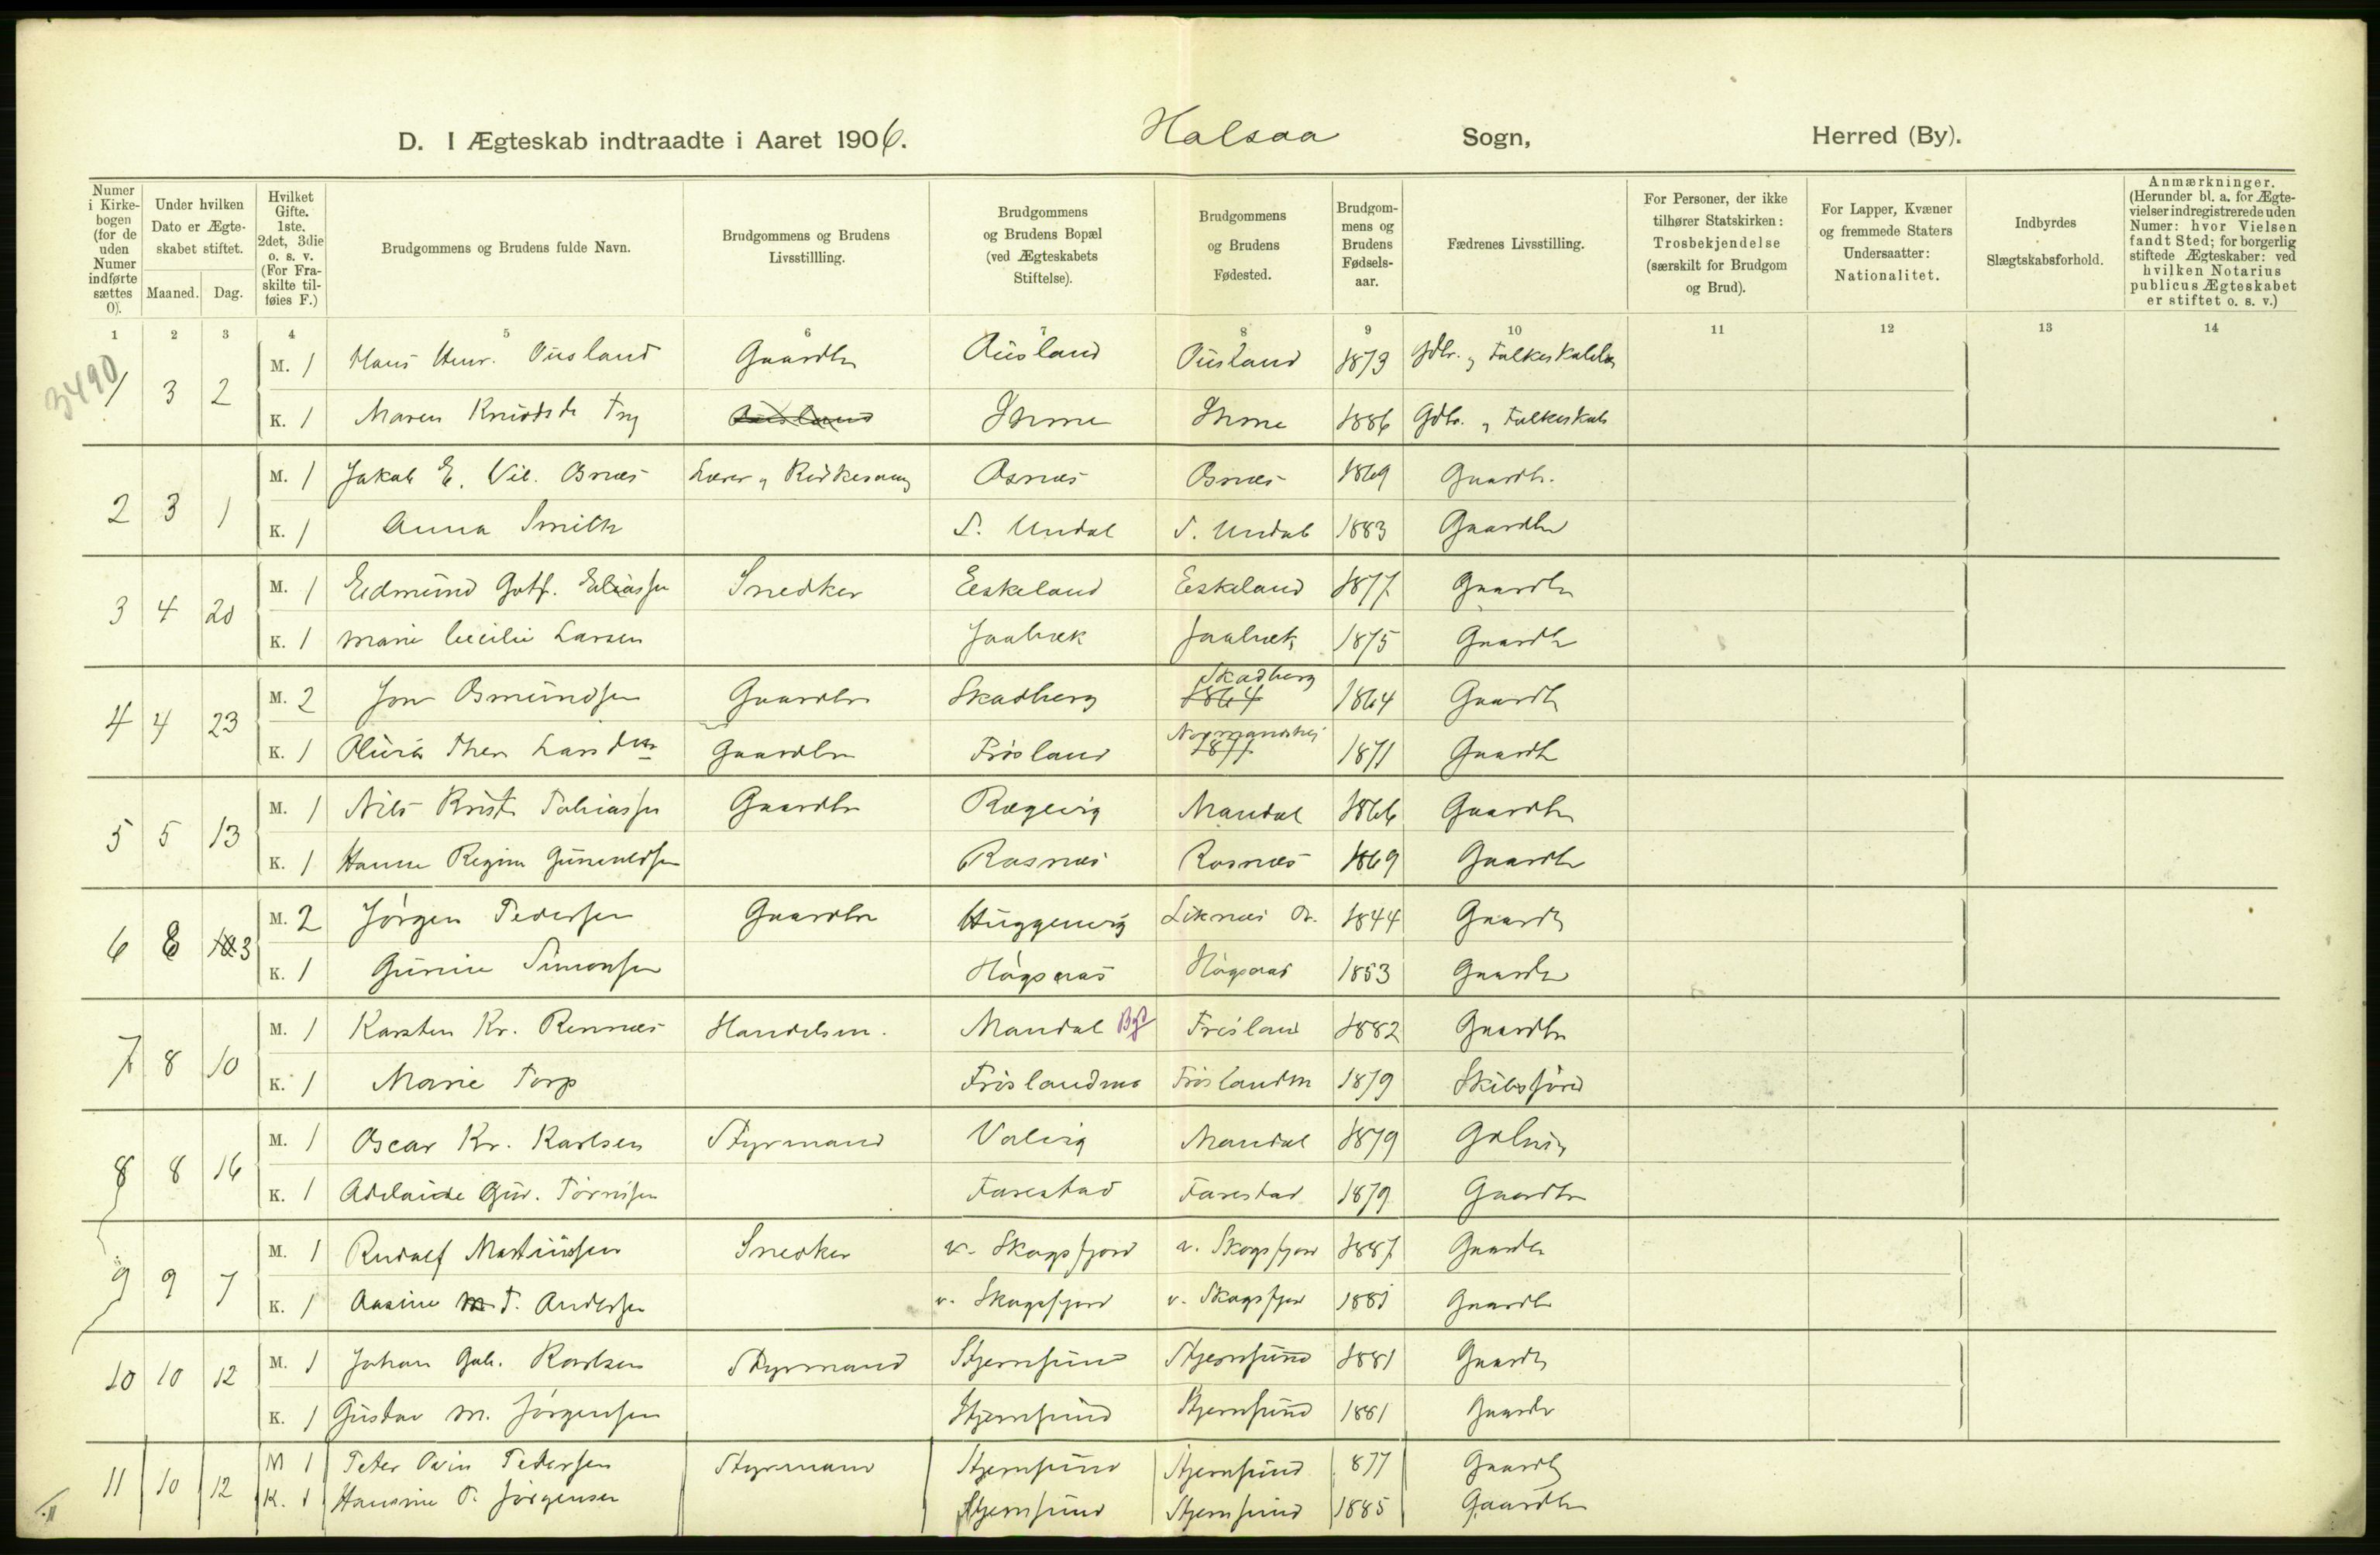 D. I Ægteskab indtraadte i Aaret 1906. Halsaa Sogn, Herred (By).
Numer i Kirkebogen (for de uden Numer indførte sættes 0).
Under hvilken Dato er Ægteskabet stiftet.
Maaned. Dag.
Hvilket Gifte. 1ste. 2det, 3die o. s. v. (For Fraskilte tilføies F.)
Brudgommens og Brudens fulde Navn.
Brudgommens og Brudens Livsstillling.
Brudgommens og Brudens Bopæl (ved Ægteskabets Stiftelse).
Brudgommens og Brudens Fødested.
Brudgommens og Brudens Fødselsaar.
Fædrenes Livsstilling.
For Personer, der ikke tilhører Statskirken: Trosbekjendelse (særskilt for Brudgom og Brud).
For Lapper, Kvæner og fremmede Staters Undersaatter: Nationalitet.
Indbyrdes Slægtskabsforhold.
Anmærkninger. (Herunder bl. a. for Ægtevielser indregistrerede uden Numer: hvor Vielsen fandt Sted; for borgerlig stiftede Ægteskaber: ved hvilken Notarius publicus Ægteskabet er stiftet o. s. v.)
1 2 3 4 5 6 7 8 9 10 11 12 13 14
3490
1 3 2 M. 1 Hans Henr. Ousland Gaardbr Ousland Ousland 1873 Gdbr.
K. 1 Maren Ihme Ihme 1886 Gdbr.
2 3 1 M. 1 Jakob E. Vil. Osnes Lærer Osnes Osnes 1869 Gaardb.
K. 1 Anna Smith S. Undal S. Undal 1883 Gaardbr
3 4 20 M. 1 Edmund Gotf. Eliassen Snedker Eeskeland Eeskeland 1877 Gaardbr
K. 1 Marie Cecilie Larsen Jaabæk Jaabæk 1875 Gaardb
4 4 23 M. 2 Jon Osmundsen Gaardbr Skadberg Skadberg 1864 1864 Gaardb
K. 1 Gaardbr Frøsland 1871 1871 Gaardb
5 5 13 M. 1 Nils Krist. Tobiassen Gaardbr Rægevig Mandal 1866 Gaardbr
K. 1 Hanne Regine Gunvaldsen Rosnes Rosnes 1869 Gaardbr
6 3 M. 2 Jørgen Pedersen Gaardbr Huggenvig 1844 Gaardb
K. 1 Gunine Simonsen Høgsaas Høgsaas 1853 Gaardbr
7 8 10 M. 1 Karsten Kr. Rennes Handelsm. Mandal By Frøsland 1882 Gaardbr
K. 1 Marie Torp Frøslandmo Frøslandm 1879 Skibsfører
8 8 16 M. 1 Oscar Kr. Karlsen Styrmand Valvig Mandal 1879
K. 1 Adelaide Gur. Tørresen Farestad Farestad 1879 Gaardbr
9 9 7 M. 1 Rudolf Martinsen Snedker v. Skogsfjord v. Skogsfjord 1887 Gaardbr
K. 1 Aasine T. Andersen v. Skogsfjord v. Skogsfjord 1881 Gaardbr
10 10 12 M. 1 Johan Gab. Karlsen Styrmand Stjernsund Stjernsund 1881 Gaardb
K. 1 Gustav M. Jørgensen Stjernsund Stjernsund 1881 Gaardbr
11 10 12 M 1 Peter Pedersen Styrmand Stjernsund Stjernsund 877 Gaardb
K. 1 Hansine P. Jørgensen Stjernsund Stjernsund 1885 Gaardbr